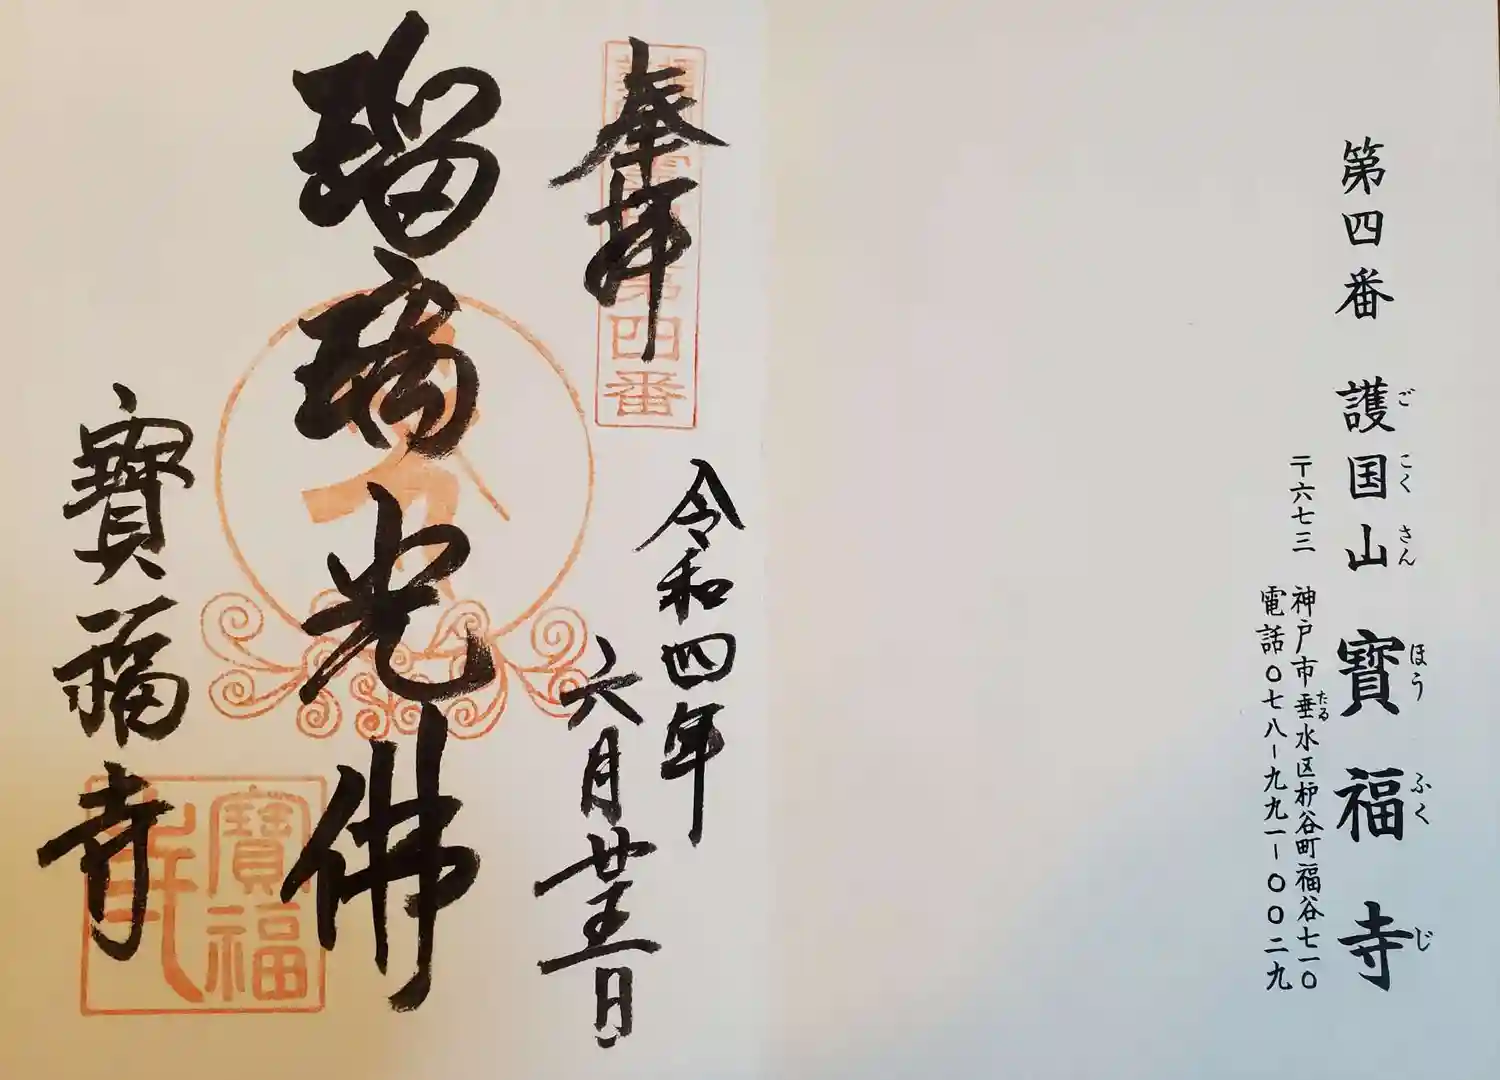 第四番 護国山 寶福寺
ごこくさん ほうふくじ
〒六七三 神戸市垂水区枦谷町福谷七一〇
たる
電話〇七八ー九九一ー〇〇二九
奉拝
第四番
令和四年
六月廿五日
瑠璃光佛
寶福寺
寶福